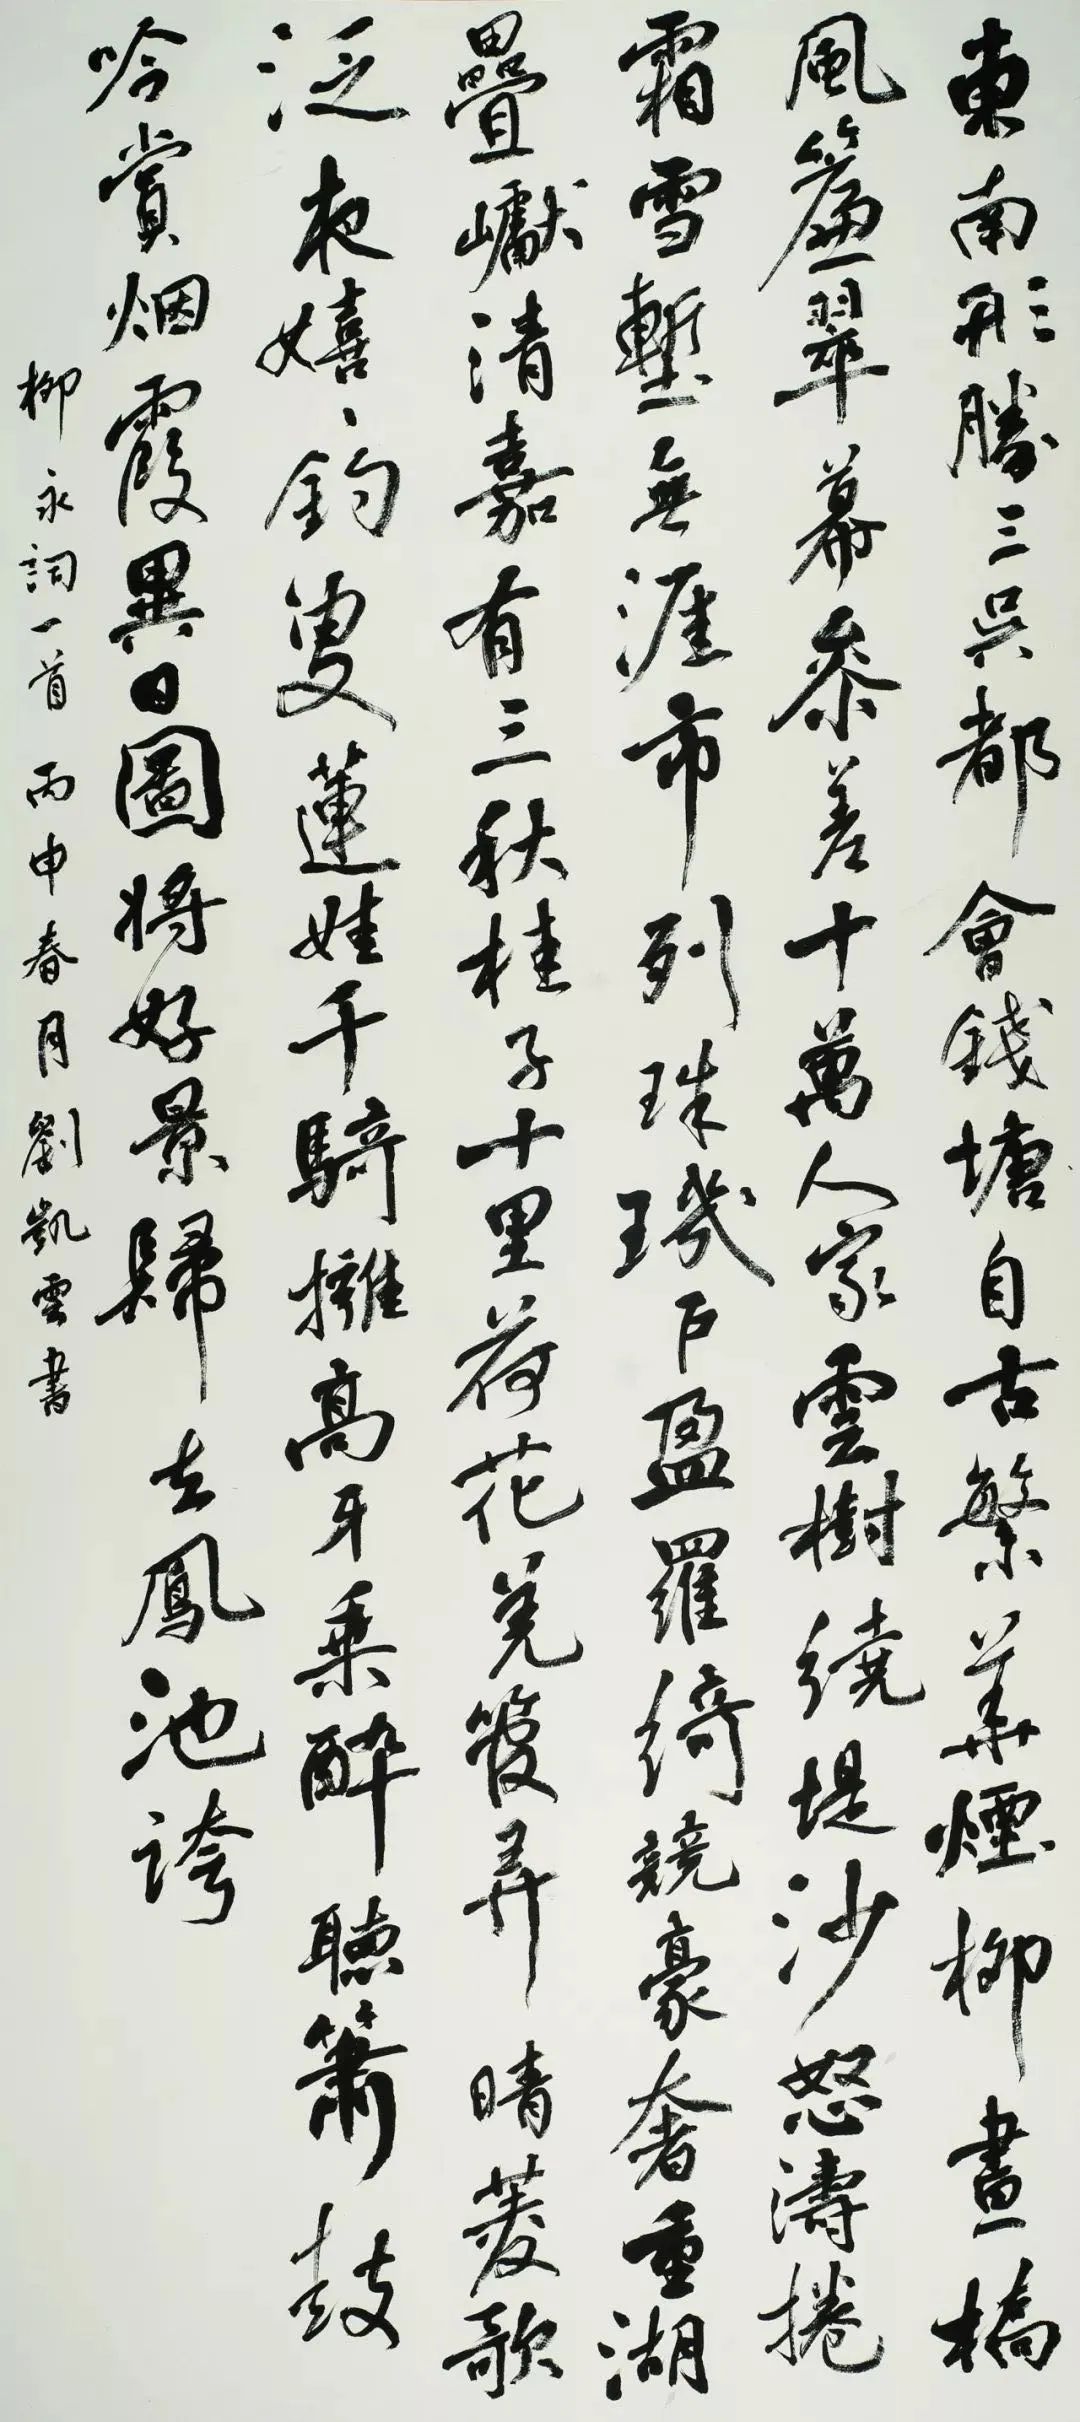 東南形勝三吳都會錢塘自古繁華煙柳畫橋
風簾翠幕參差十萬人家雲樹繞堤沙怒濤捲
霜雪塹無涯市列珠璣戶盈羅綺競豪奢重湖
疊巘清嘉有三秋桂子十里荷花羌管弄晴菱歌
泛夜嬉〻釣叟蓮娃千騎擁高牙乘醉聽簫鼓
吟賞烟霞異日圖將好景歸去鳳池誇
柳永詞一首 丙申春月劉凱雲書